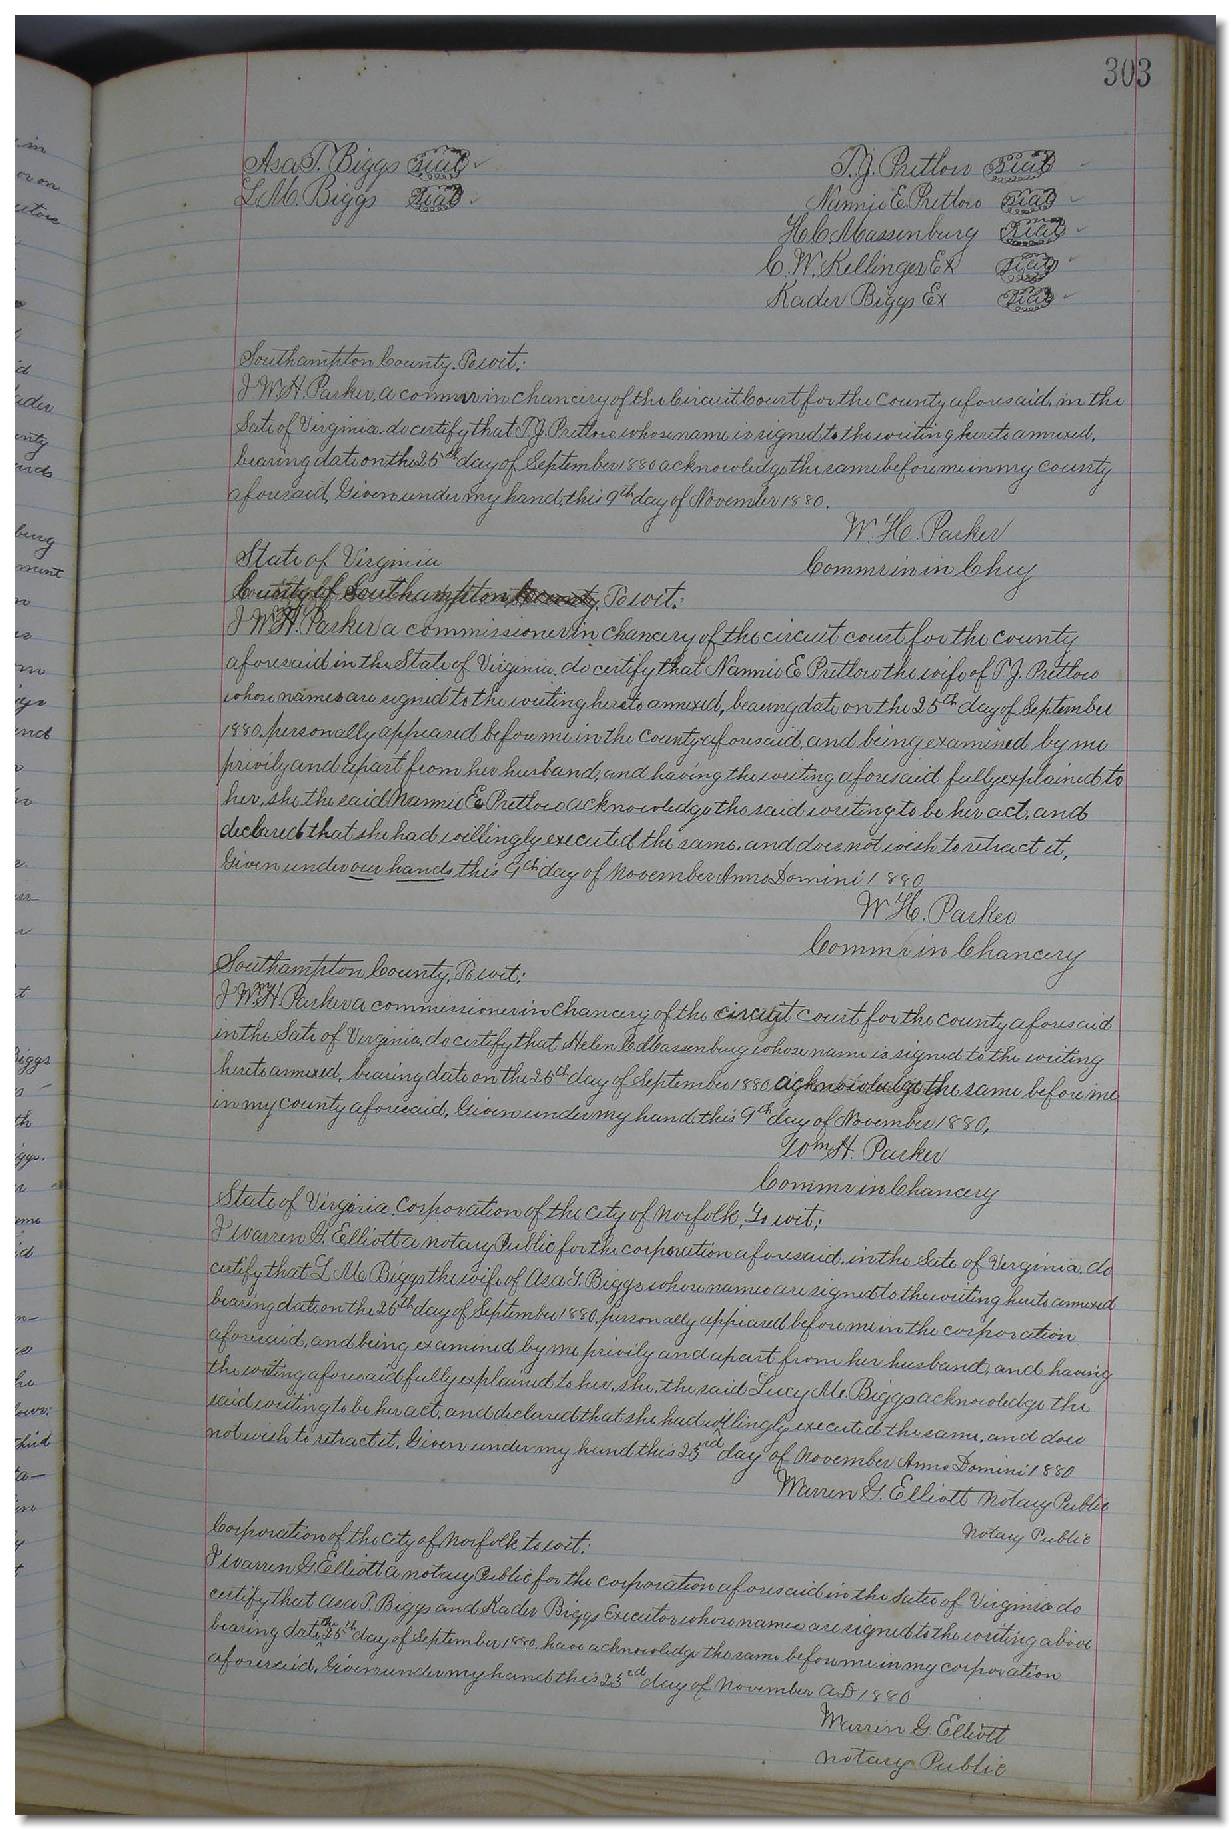 303
Asa T. Biggs Seal
L. M. Biggs Seal
T. J. Pretlow Seal
Nannie E. Pretlow Seal
H C Massenburg Seal
C. W. Kellinger Ex Seal
Kader Biggs Ex Seal
Southampton County. To wit:
I Wm H. Parker, a commr in chancery of the Circuit Court for the County aforesaid, in the
Sate of Virginia. do certify that T. J. Pretlow whose name is signed to the writing hereto annexed,
bearing date on the 25th day of September 1880 acknowledge the same before me in my county
aforesaid, Given under my hand, this 9th day of November 1880.
W. H. Parker
Commr in in Chcy
State of Virginia
County of Southampton County, To wit:
I Wm H. Parker a commissioner in chancery of the circuit court for the county
aforesaid in the State of Virginia, do certify that Nannie E Pretlow the wife of T J. Pretlow
whose names are signed to the writing hereto annexed, bearing date on the 25th day of September
1880, personally appeared before me in the county aforesaid, and being examined by me
privily and apart from her husband, and having the writing aforesaid fully explained to
her, she the said Nannie E Pretlow acknowledge the said writing to be her act, and
declared that she had willingly executed the same, and does not wish to retract it,
Given under our hands this 9th day of November Anno Domini 1880
W H. Parker
Commr in Chancery
Southampton County, To wit:
I Wm H. Parker a commissioner in chancery of the circuit court for the county aforesaid
in the Sate of Virginia, do certify that Helen C Massenburg whose name is signed to the writing
hereto annexed, bearing date on the 25th day of September 1880 acknowledge the same before me
in my county aforesaid, Given under my hand this 9th day of November 1880,
Wm H. Parker
Commr in Chancery
State of Virginia Corporation of the city of Norfolk, To wit:
I Warren G. Elliott a notary Public for the corporation aforesaid, in the Sate of Virginia do
certify that L M Biggs the wife of Asa T Biggs whose names are signed to the writing hereto annexed
bearing date on the 25th day of September 1880, personally appeared before me in the corporation
aforesaid, and being examined by me privily and apart from her husband, and having
the writing aforesaid fully explained to her, she, the said Lucy M. Biggs acknowledge the
said writing to be her act, and declared that she had willingly executed the same, and does
not wish to retract it, Given under my hand this 23rd day of November Anno Domini 1880
Warren G. Elliott Notary Public
Notary Public
Corporation of the city of Norfolk to wit:
I Warren G. Elliott a notary Public for the corporation aforesaid in the Sate of Virginia do
certify that Asa T. Biggs and Kader Biggs Executor whose names are signed to the writing above
bearing date the 25th day of September 1880, have acknowledge the same before me in my corporation
aforesaid, Given under my hand this 23rd day of November AD 1880
Warren G. Elliott
Notary Public